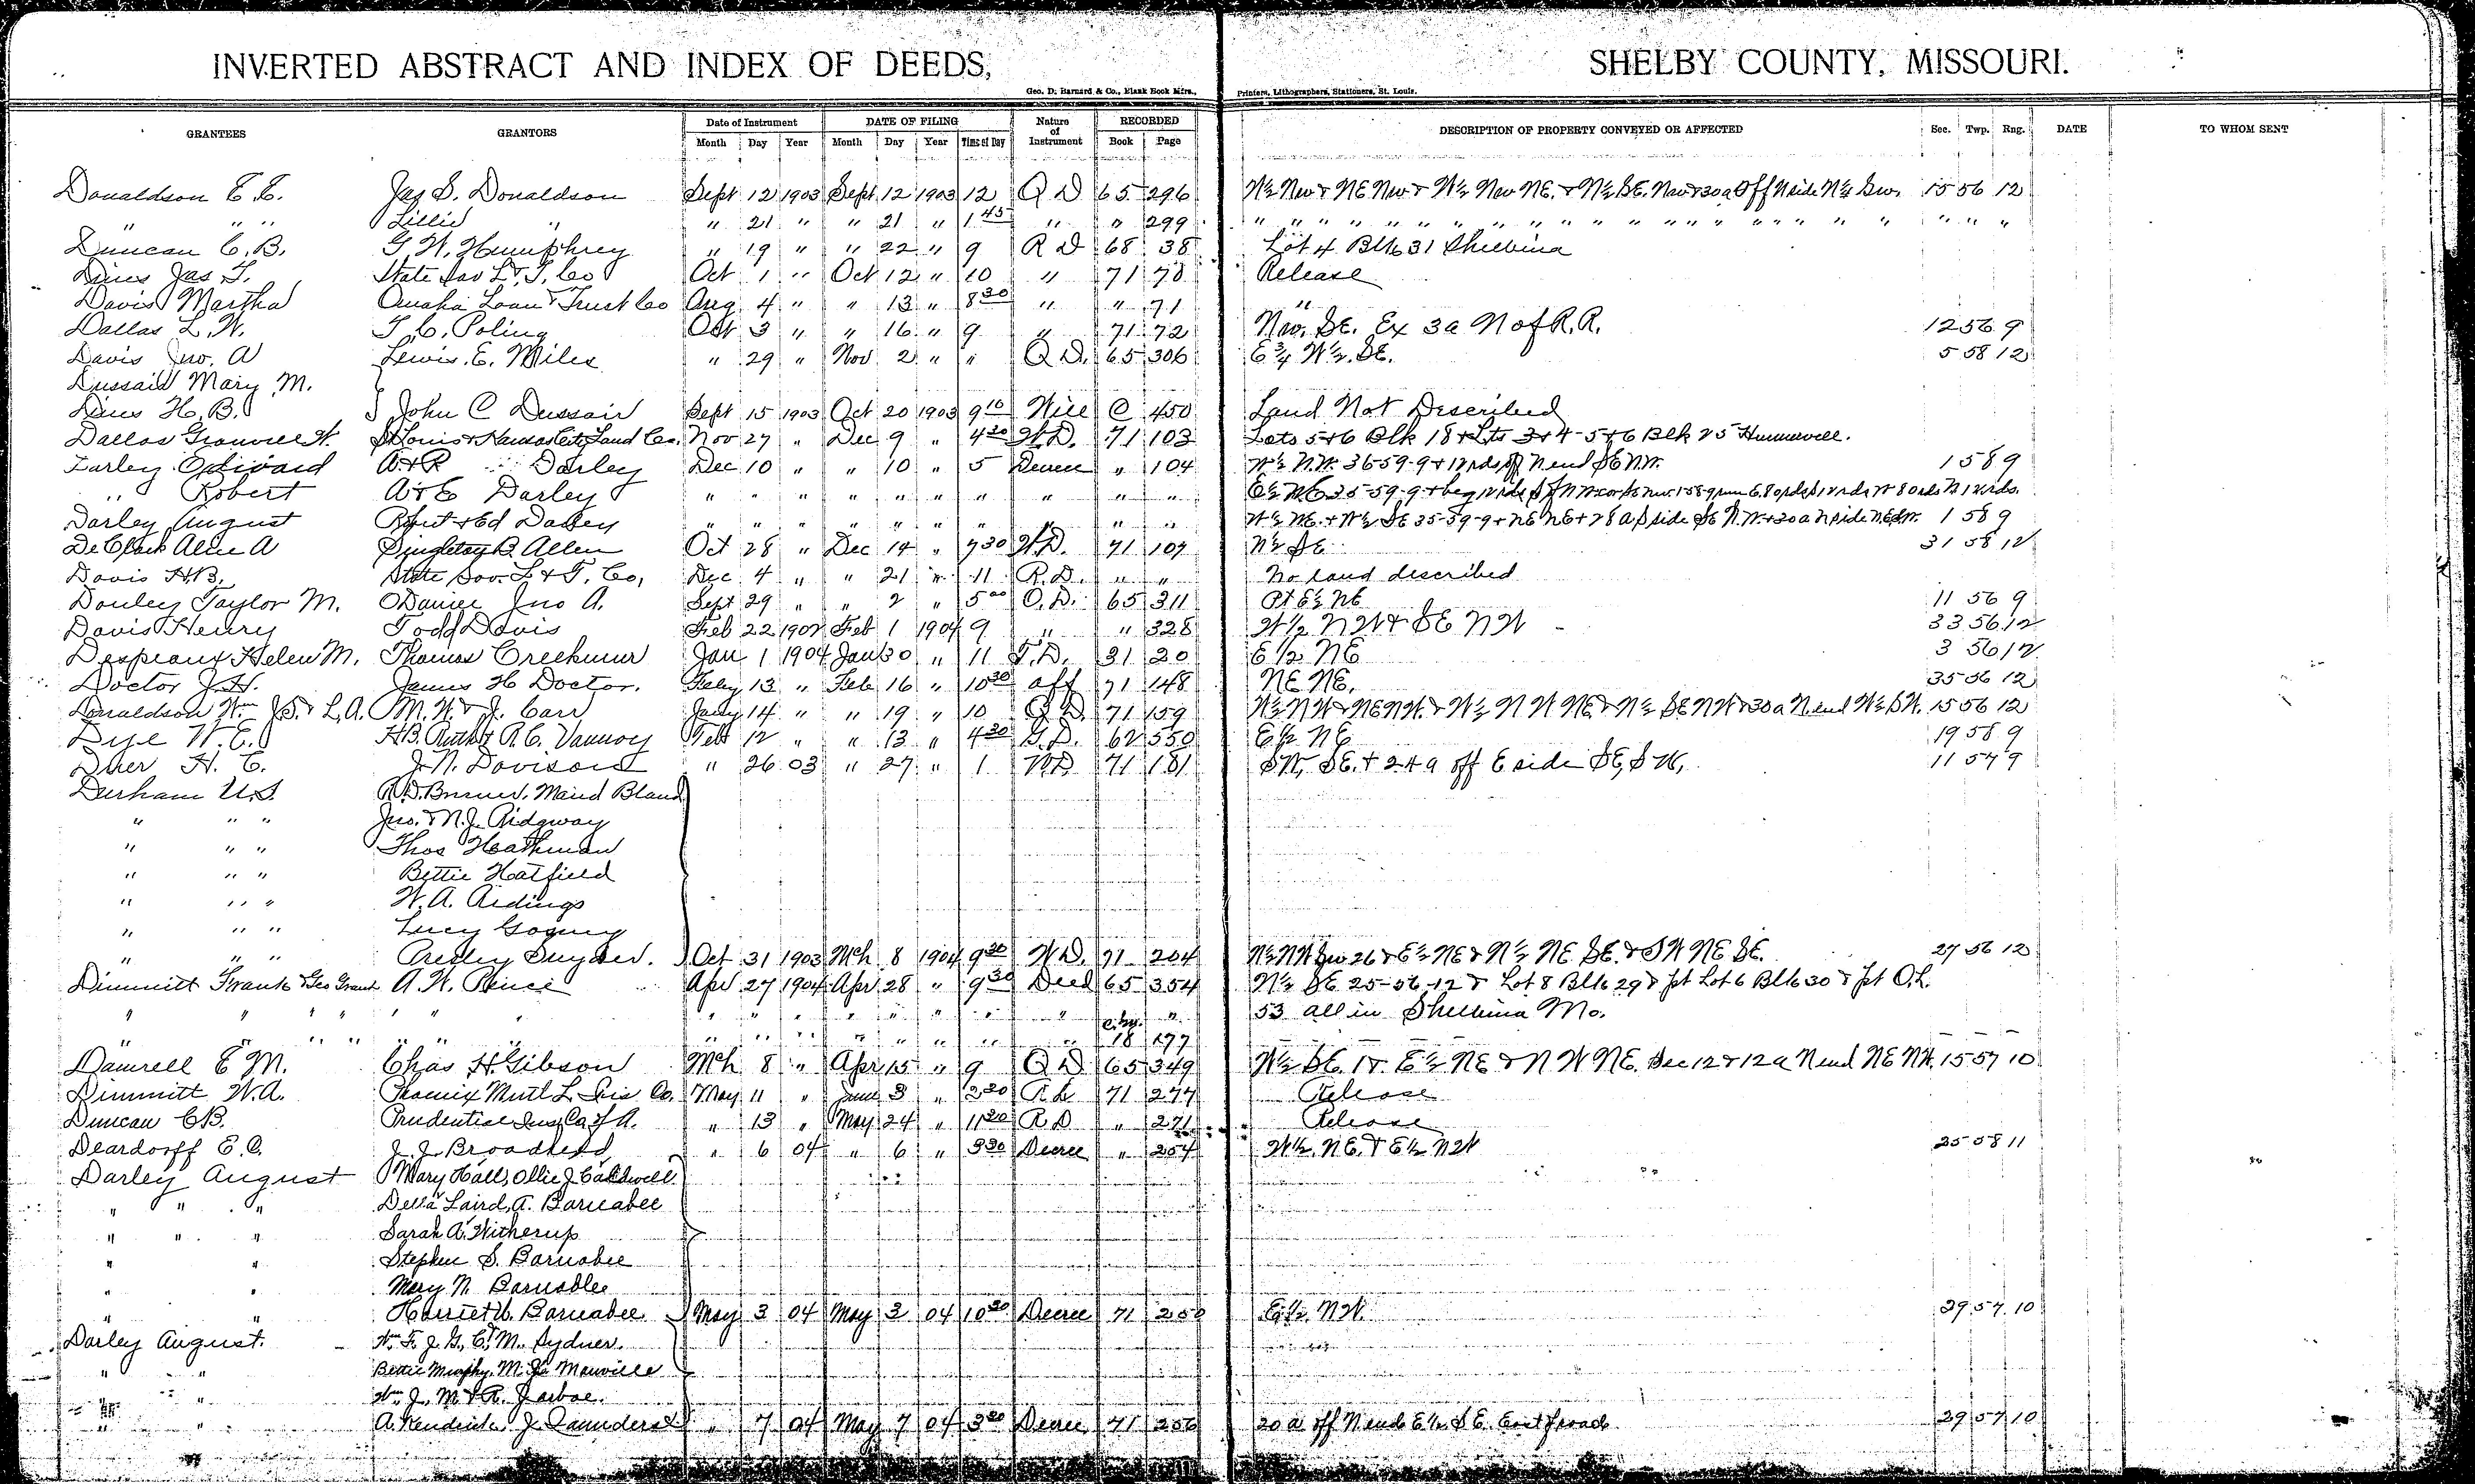 INVERTED ABSTRACT AND INDEX OF DEEDS, SHELBY COUNTY, MISSOURI.
Geo. D. Barnard & Co., Blank Book Mfrs., Printers, Lithographers, Stationers, St. Louis.
GRANTEES GRANTORS Date of Instrument DATE OF FILING Nature of Instrument RECORDED DESCRIPTION OF PROPERTY CONVEYED OR AFFECTED Sec. Twp. Rng. DATE TO WHOM SENT
Month Day Year Month Day Year Time of Day Book Page
Donaldson E. E. Jas S. Donaldson Sept 12 1903 Sept 12 1903 12 Q D 65 296 W½ Nw & NE Nw & W½ Nw NE. & N½ SE. Nw & 30a Off N side N½ Sw. 15 56 12
" " " Lillie " " 21 " " 21 " 1 45 " " 299 " " " " " " " " " " " " " " " "
Duncan C. B. G. W. Humphrey " 19 " " 22 " 9 R D 68 38 Lot 4 Blk 31 Shelbina
Dines Jas T. State Sav L. & T. Co Oct 1 " Oct 12 " 10 " 71 70 Release
Davis Martha Omaha Loan & Trust Co Aug 4 " " 13 " 8 30 " " 71 "
Dallas L. W. T. C. Poling Oct 3 " " 16 " 9 " 71 72 Nw. SE. Ex 3a N of R. R. 12 56 9
Davis Jno. A Lewis. E. Miles " 29 " Nov 2 " " Q D. 65 306 E ¾ W½. SE. 5 58 12
Dussair Mary M.
Dines H. B. John C Dussair Sept 15 1903 Oct 20 1903 9 10 Will C 450 Land Not Described
Dallas Granvill W. St Louis & Kansas City Land Co. Nov 27 " Dec 9 " 4 30 W. D. 71 103 Lots 5+6 Blk 18 & Lts 3+4-5+6 Blk 25 Hunnewell.
Darley Edward A & R Darley Dec 10 " " 10 " 5 Decree " 104 W½ N.W. 36-59-9 + 12 rds off N end SE N.W. 1 58 9
" Robert A & E Darley " " " " " " " " " "
Darley August Robt & Ed Darley " " " " " " " " " " 1 58 9
De Clark Alice A Singleton B. Allen Oct 28 " Dec 14 " 7 30 W. D. 71 107 N½ SE 31 58 12
Davis H B. State Sav. L & T. Co, Dec 4 " " 21 " 11 R. D. " " No land described
Donley Taylor M. O Daniel Jno A. Sept 29 " " 2 " 5 00 Q. D. 65 311 Pt E½ NE 11 56 9
Davis Henry Todd Davis Feb 22 1902 Feb 1 1904 9 " " 328 W½ NW & SE NW 33 56 12
Despeaux Helen M. Thomas Creekmur Jan 1 1904 Jan 30 " 11 T. D. 31 20 E ½ NE 3 56 12
Doctor J. H. James H Doctor. Feby 13 " Feb 16 " 10 30 aff 71 148 NE NE. 35 56 12
Donaldson Wm J. S. & L. A. M. W. & J. Carr Jany 14 " " 19 " 10 Q D. 71 159 W½ N W & NE NW. & W½ N W NE & N½ SE NW & 30a N end W½ S W. 15 56 12
Dye W. E. H B. Ruth & R. C. Vannoy Feb 12 " " 13 " 4 30 G. D. 62 550 E½ NE 19 58 9
Duer H. E. J. N. Davison " 26 03 " 27 " 1 W. D 71 181 S W, SE. & 24 a off E side SE, S W, 11 57 9
Durham U. S. Maud Bland
" " " Jno. & N. J. Ridgway
" " " Thos Heathman
" " " Bettie Hatfield
" " " W. A. Ridings
" " " Lucy
" " " Presley Snyder. Oct 31 1903 Mch 8 1904 9 30 W D. 71 204 N½ NW Sw 26 & E½ NE & N½ NE SE. & S W NE SE. 27 56 12
Dimmitt Frank & Geo Grant A. W. Pence Apr 27 1904 Apr 28 " 9 30 Deed 65 354 W½ SE 25-56-12 & Lot 8 Blk 29 & pt Lot 6 Blk 30 & pt O. L.
" " " " " " " " " " " " " " " 53 all in Shelbina Mo.
" " " " " " " " " " " " " 18 177
Damrell E M. Chas H. Gibson Mch 8 " Apr 15 " 9 Q D 65 349 W½ SE. 1 & E½ NE & N W NE. Sec 12 & 12a N end NE NW. 15 57 10
Dimmitt W. A. Phoenix Mutl L. Ins Co. May 11 " June 3 " 2 30 R D 71 277 Release
Duncan C B. Prudential Ins. Co of A. " 13 " May 24 " 11 20 R D " 271 Release
Deardorff E. C. J. J. Broadhead " 6 04 " 6 " 3 30 Decree " 254 W½. NE. & E½ NW 25 58 11
Darley August Mary Hall, Ollie J. Caldwell
" " " Della Laird, A. Barnabee
" " " Sarah A. Witherup
" " Stephen S. Barnabee
" " Mary N. Barnabee
" " Harriet U. Barnabee May 3 04 May 3 04 10 30 Decree 71 250 E½. NW. 29 57 10
Darley August. Wm F. J. G., C. M. Sydner.
" " Bettie Murphy, Manville
" " Wm J. M & R. Jarboe.
" " A. Kendrick, J. Saunders " 7 04 May 7 04 3 30 Decree 71 256 20 a off N end E½ S E. East of road 29 57 10